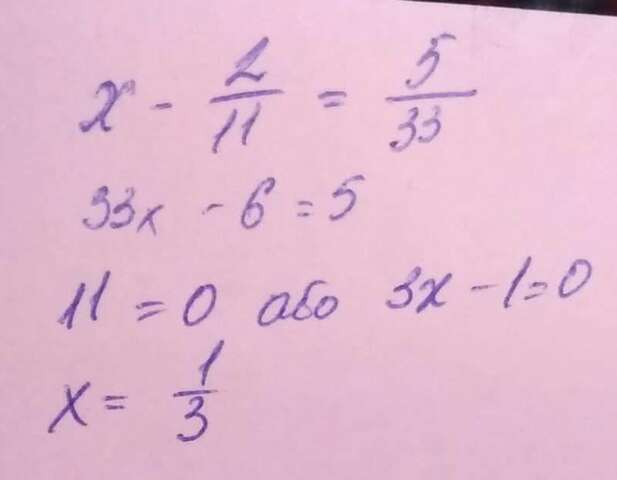 x - 2/11 = 5/33
33x - 6 = 5
11 = 0 або 3x - 1 = 0
x = 1/3